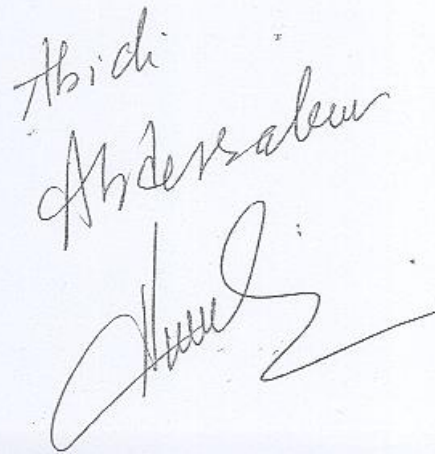 Abidi
Abdessalem